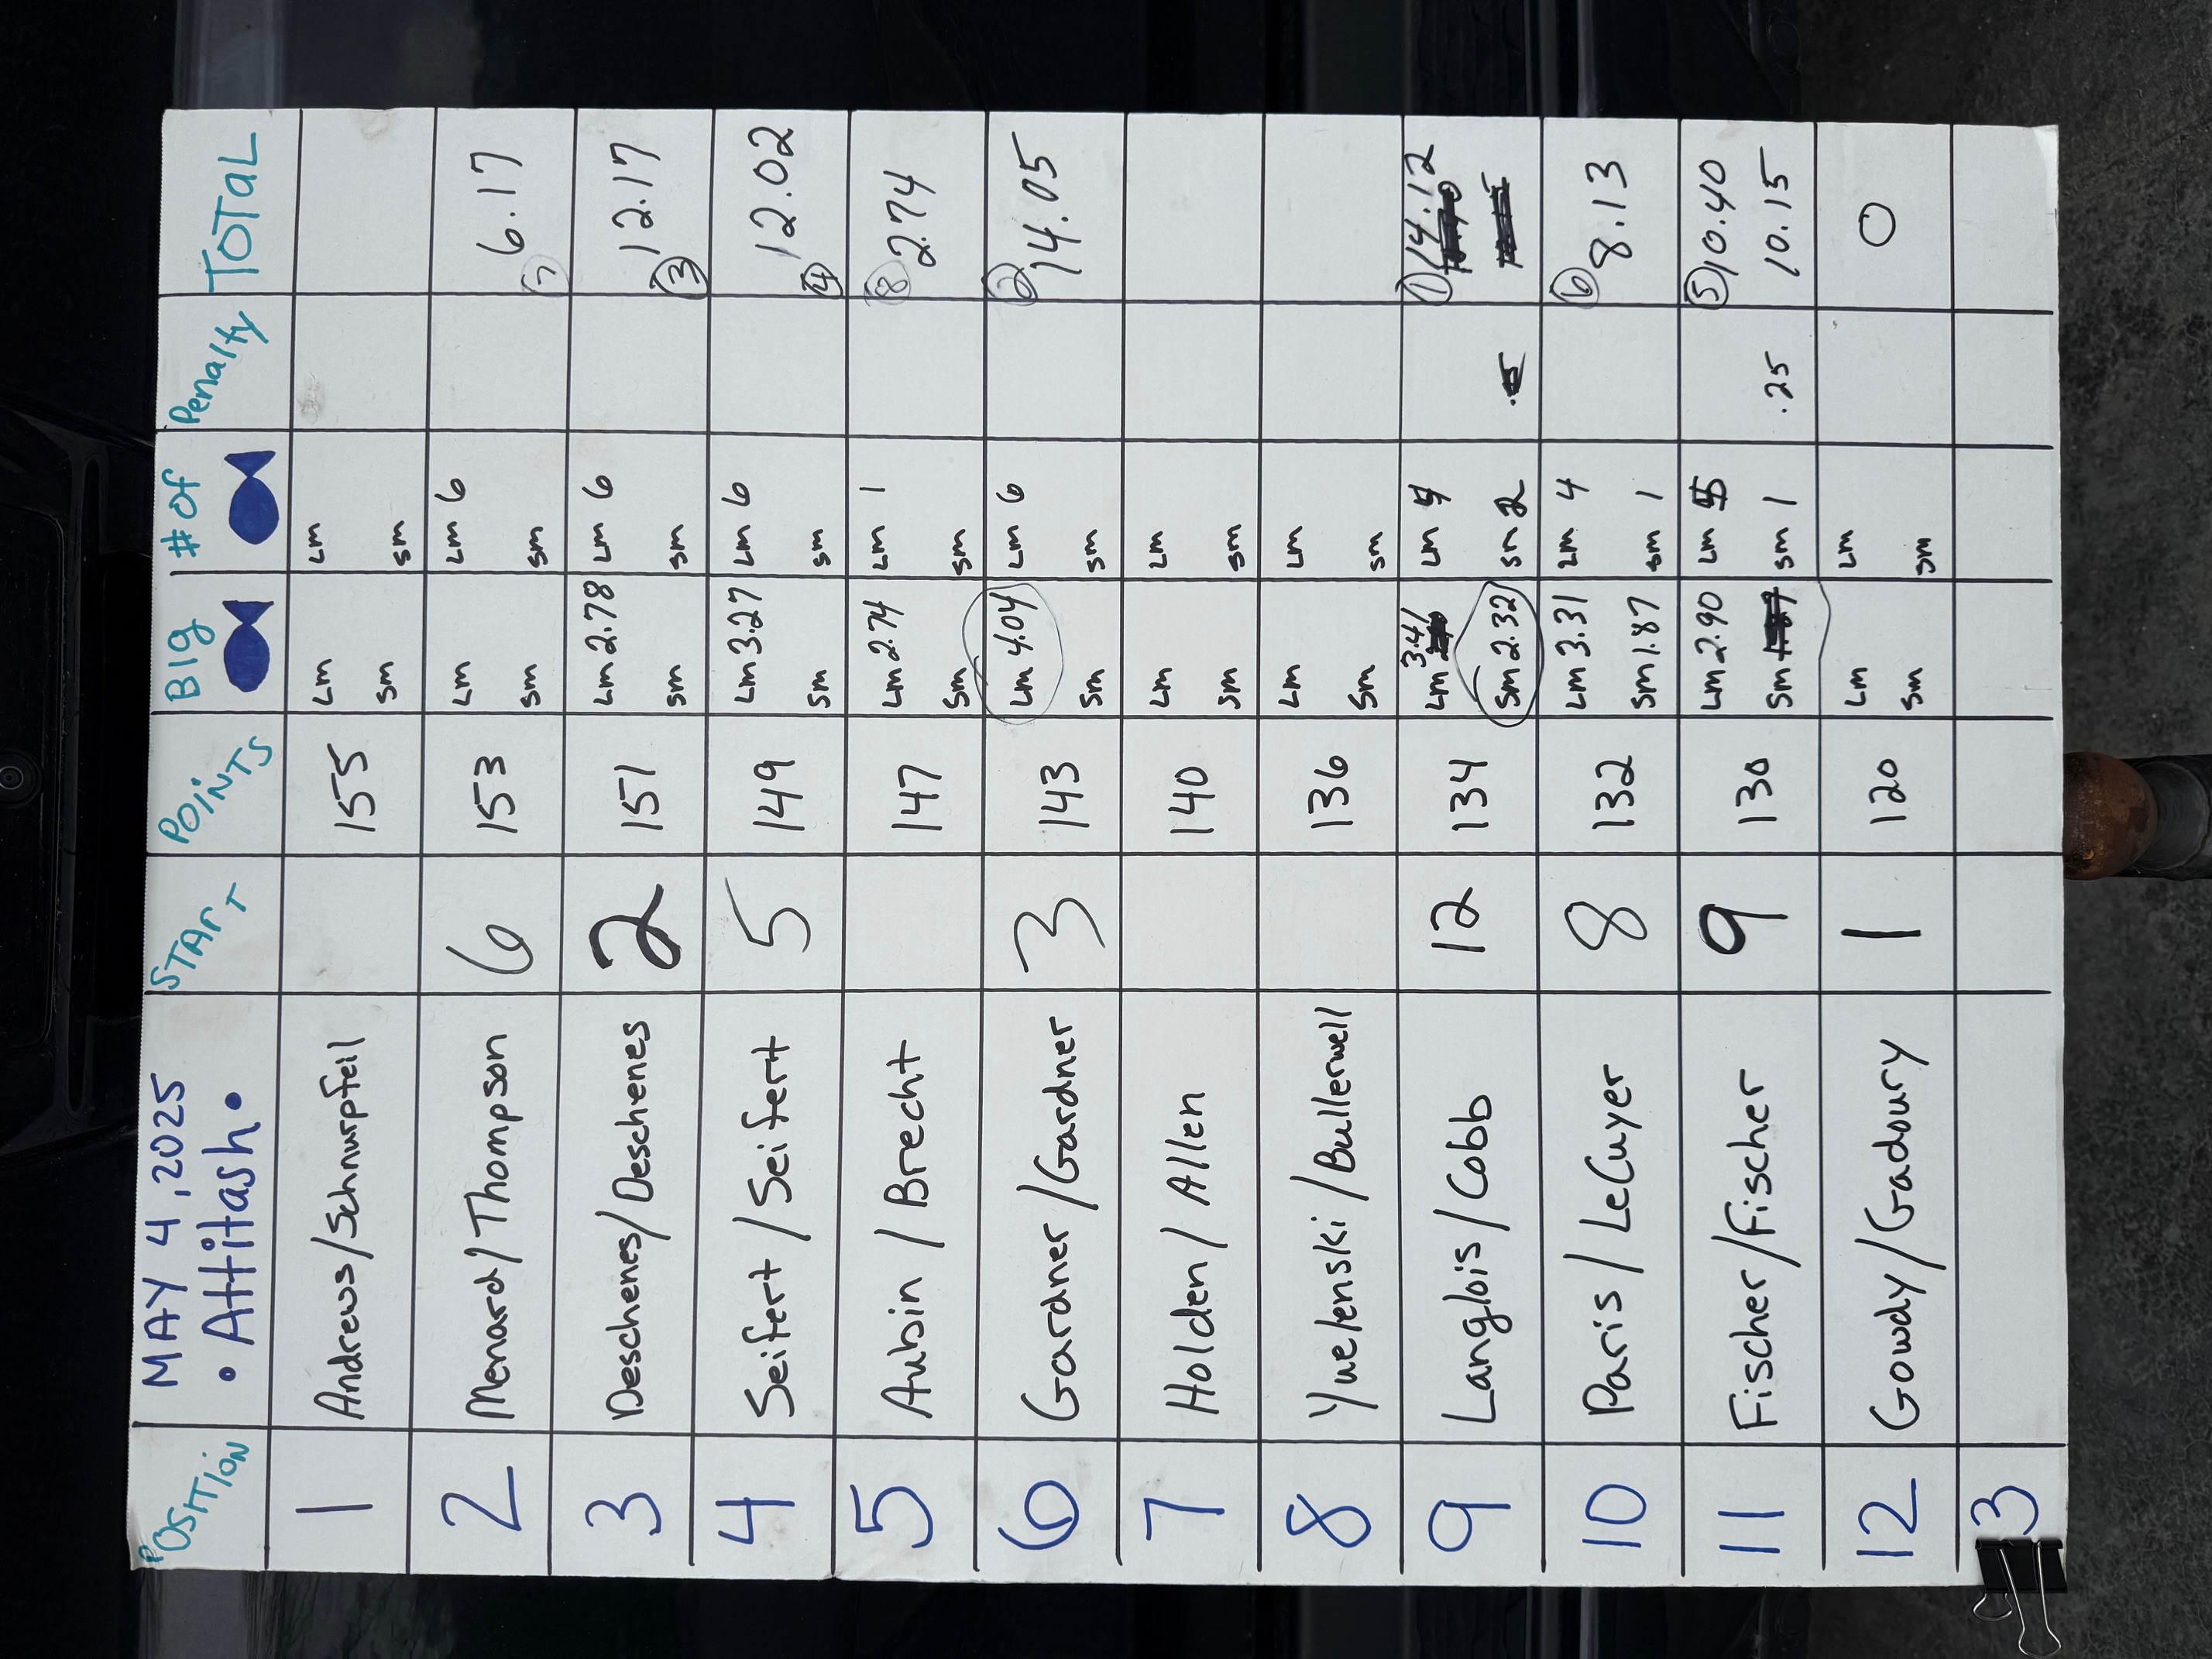 POSITION MAY 4, 2025 START POINTS BIG # OF Penalty TOTAL
• Attitash •
1 Andrews/Schnurpfeil 155 Lm Lm
sm sm
2 Menard/Thompson 6 153 Lm Lm 6 6.17
sm sm 7
3 Deschenes/Deschenes 2 151 Lm 2.78 Lm 6 12.17
sm sm 3
4 Seifert/Seifert 5 149 Lm 3.27 Lm 6 12.02
sm sm 4
5 Aubin/Brecht 147 Lm 2.74 Lm 1 8 2.74
sm sm
6 Gardner/Gardner 3 143 Lm 4.04 Lm 6 2 14.05
sm sm
7 Holden/Allen 140 Lm Lm
sm sm
8 Yuelenski/Bullerwell 136 Lm Lm
sm sm
9 Langlois/Cobb 12 134 Lm 3.41 Lm 4 1 14.12
sm 2.32 sm 2
10 Paris/LeCuyer 8 132 Lm 3.31 Lm 4 6 8.13
sm 1.87 sm 1
11 Fischer/Fischer 9 130 Lm 2.90 Lm 5 5 10.40
sm sm 1 .25 10.15
12 Gowdy/Gadoury 1 120 Lm Lm 0
sm sm
3